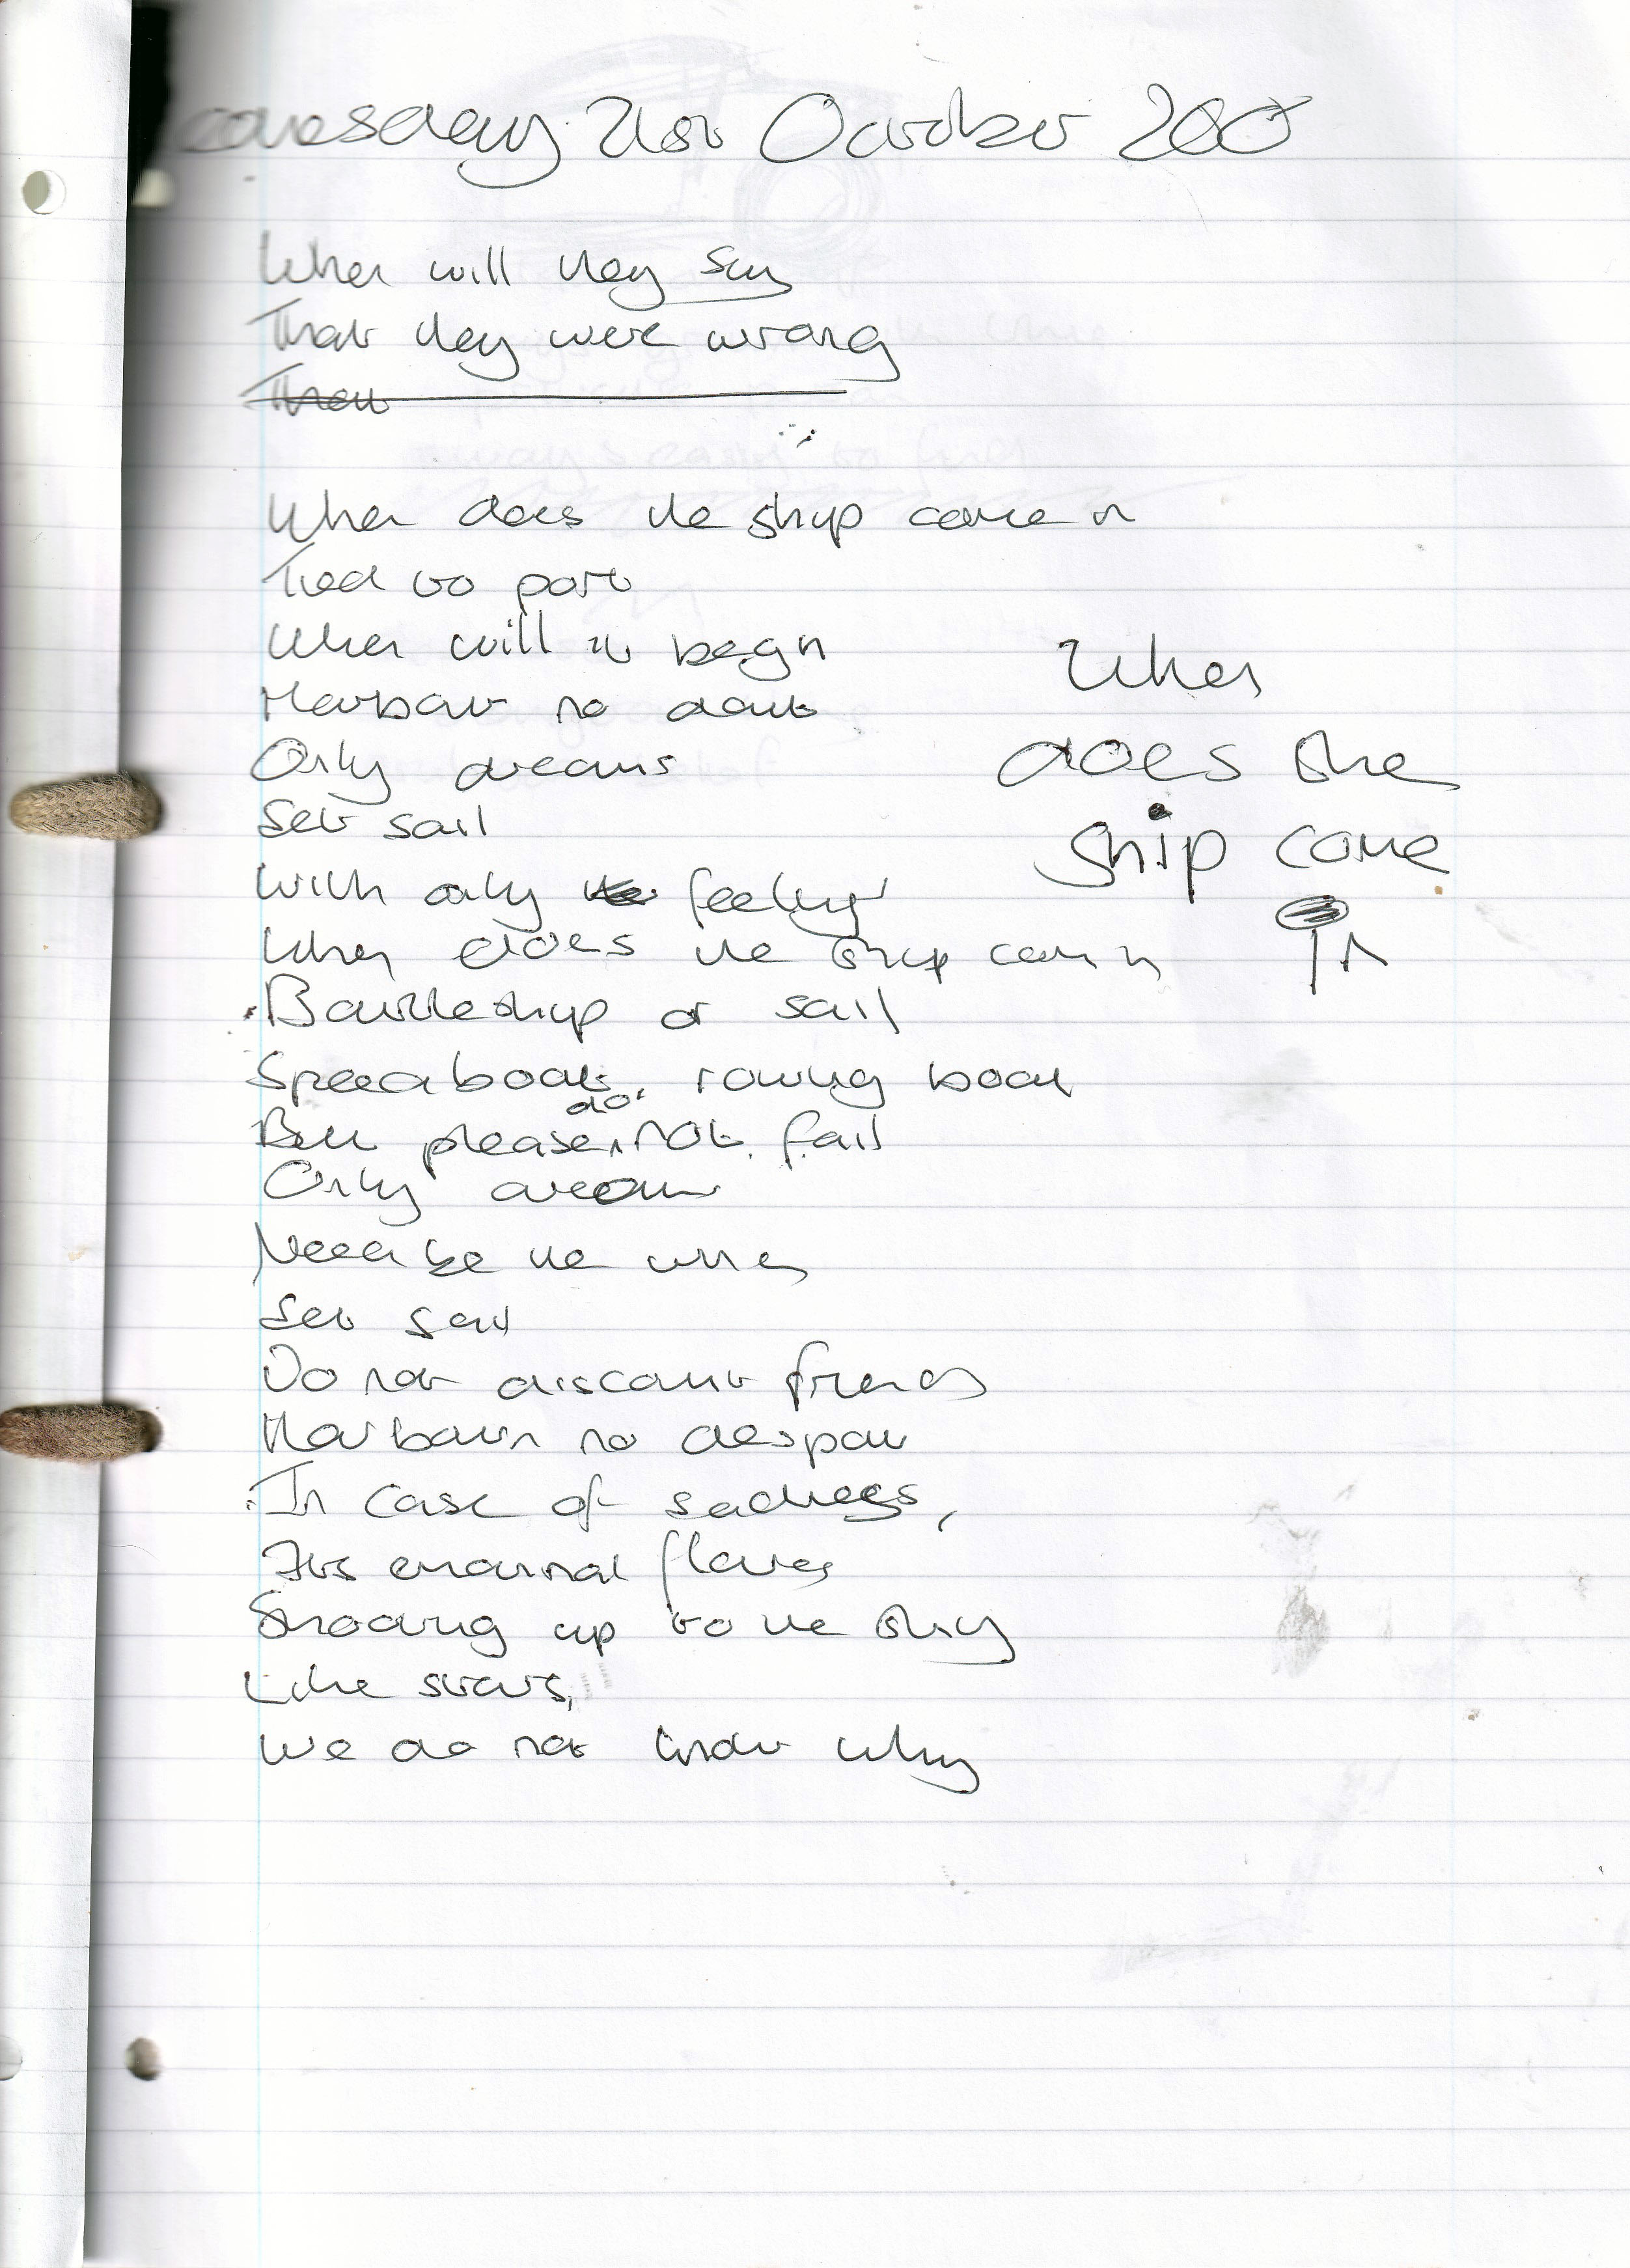 Wednesday 21st October 200
When will they say
That they were wrong
When does the ship come in
Tied to port
When will it begin
Harbour no doubt
Only dreams
Set sail
With only feelings
When does the ship come in
Battleship or sail
Speedboat, rowing boat
But please do not fail
Only dreams
Need be the
Set sail
Do not discount friends
Harbour no despair
In case of sadness,
Its eternal flames
Shooting up to the sky
Like stars,
We do not know why
When
does the
ship come
in